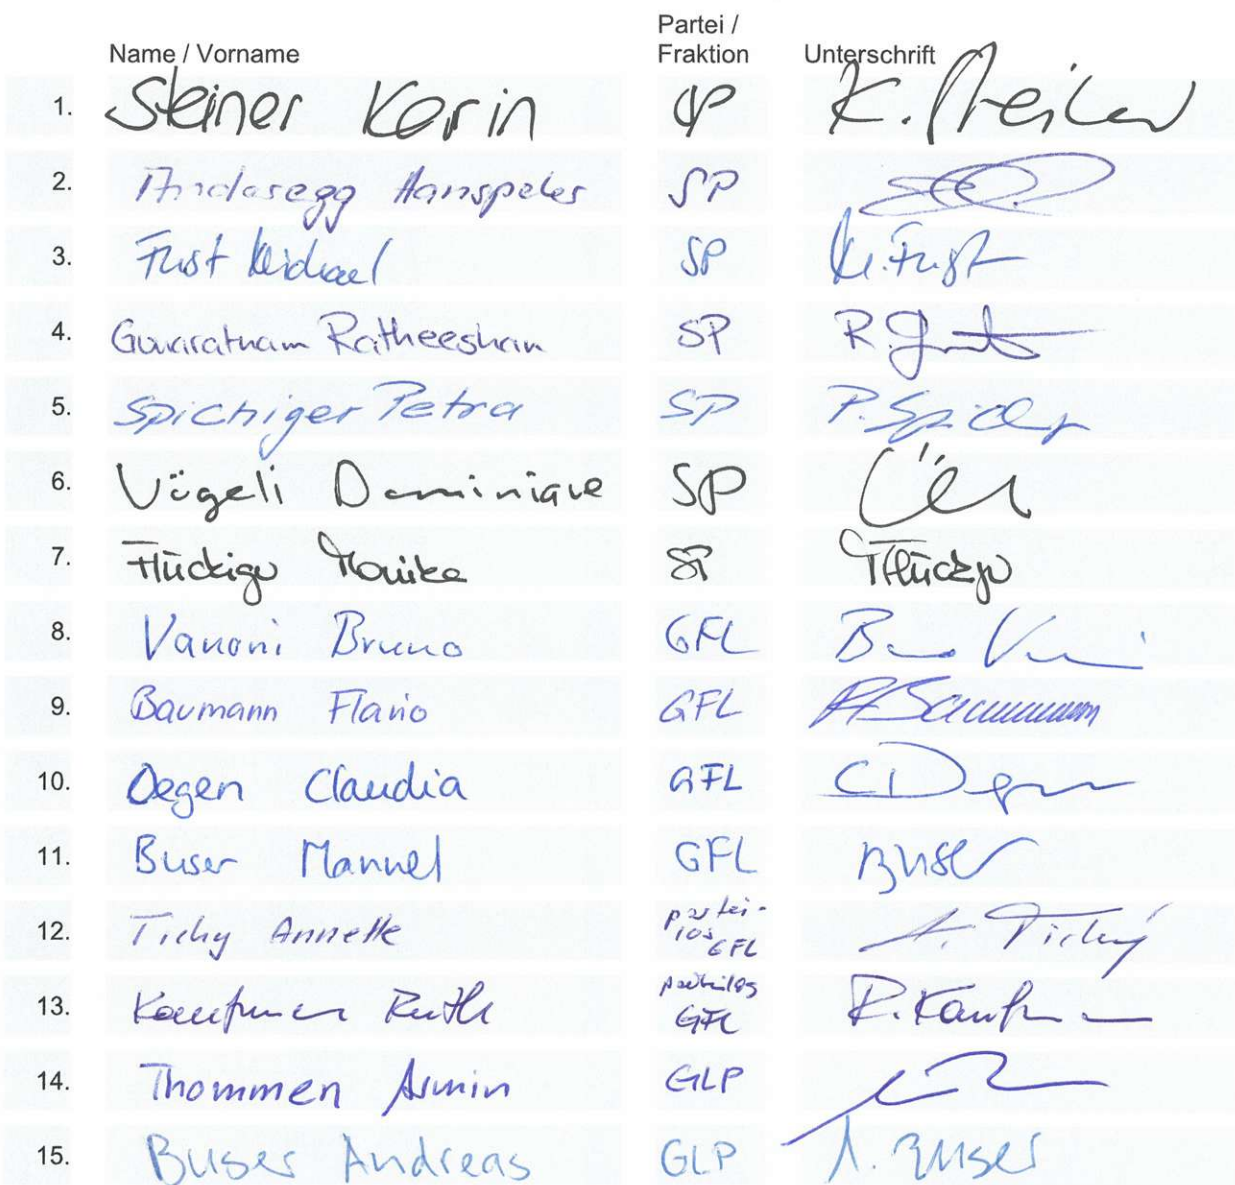 Partei /
Name / Vorname Fraktion Unterschrift
1. Steiner Karin SP K. Steiner
2. Anderegg Hanspeter SP
3. Fust Michael SP M. Fust
4. Gunaratnam Ratheeshan SP R.
5. Spichiger Petra SP P.
6. Vögeli Dominique SP
7. Flückiger Monika SP
8. Vanoni Bruno GFL
9. Baumann Flavio GFL
10. Degen Claudia GFL
11. Buser Manuel GFL Buser
12. Tichy Annette partei-
los
GFL A. Tichy
13. Kaufmann Ruth parteilos
GFL R.
14. Thommen Armin GLP
15. Buser Andreas GLP A. Buser